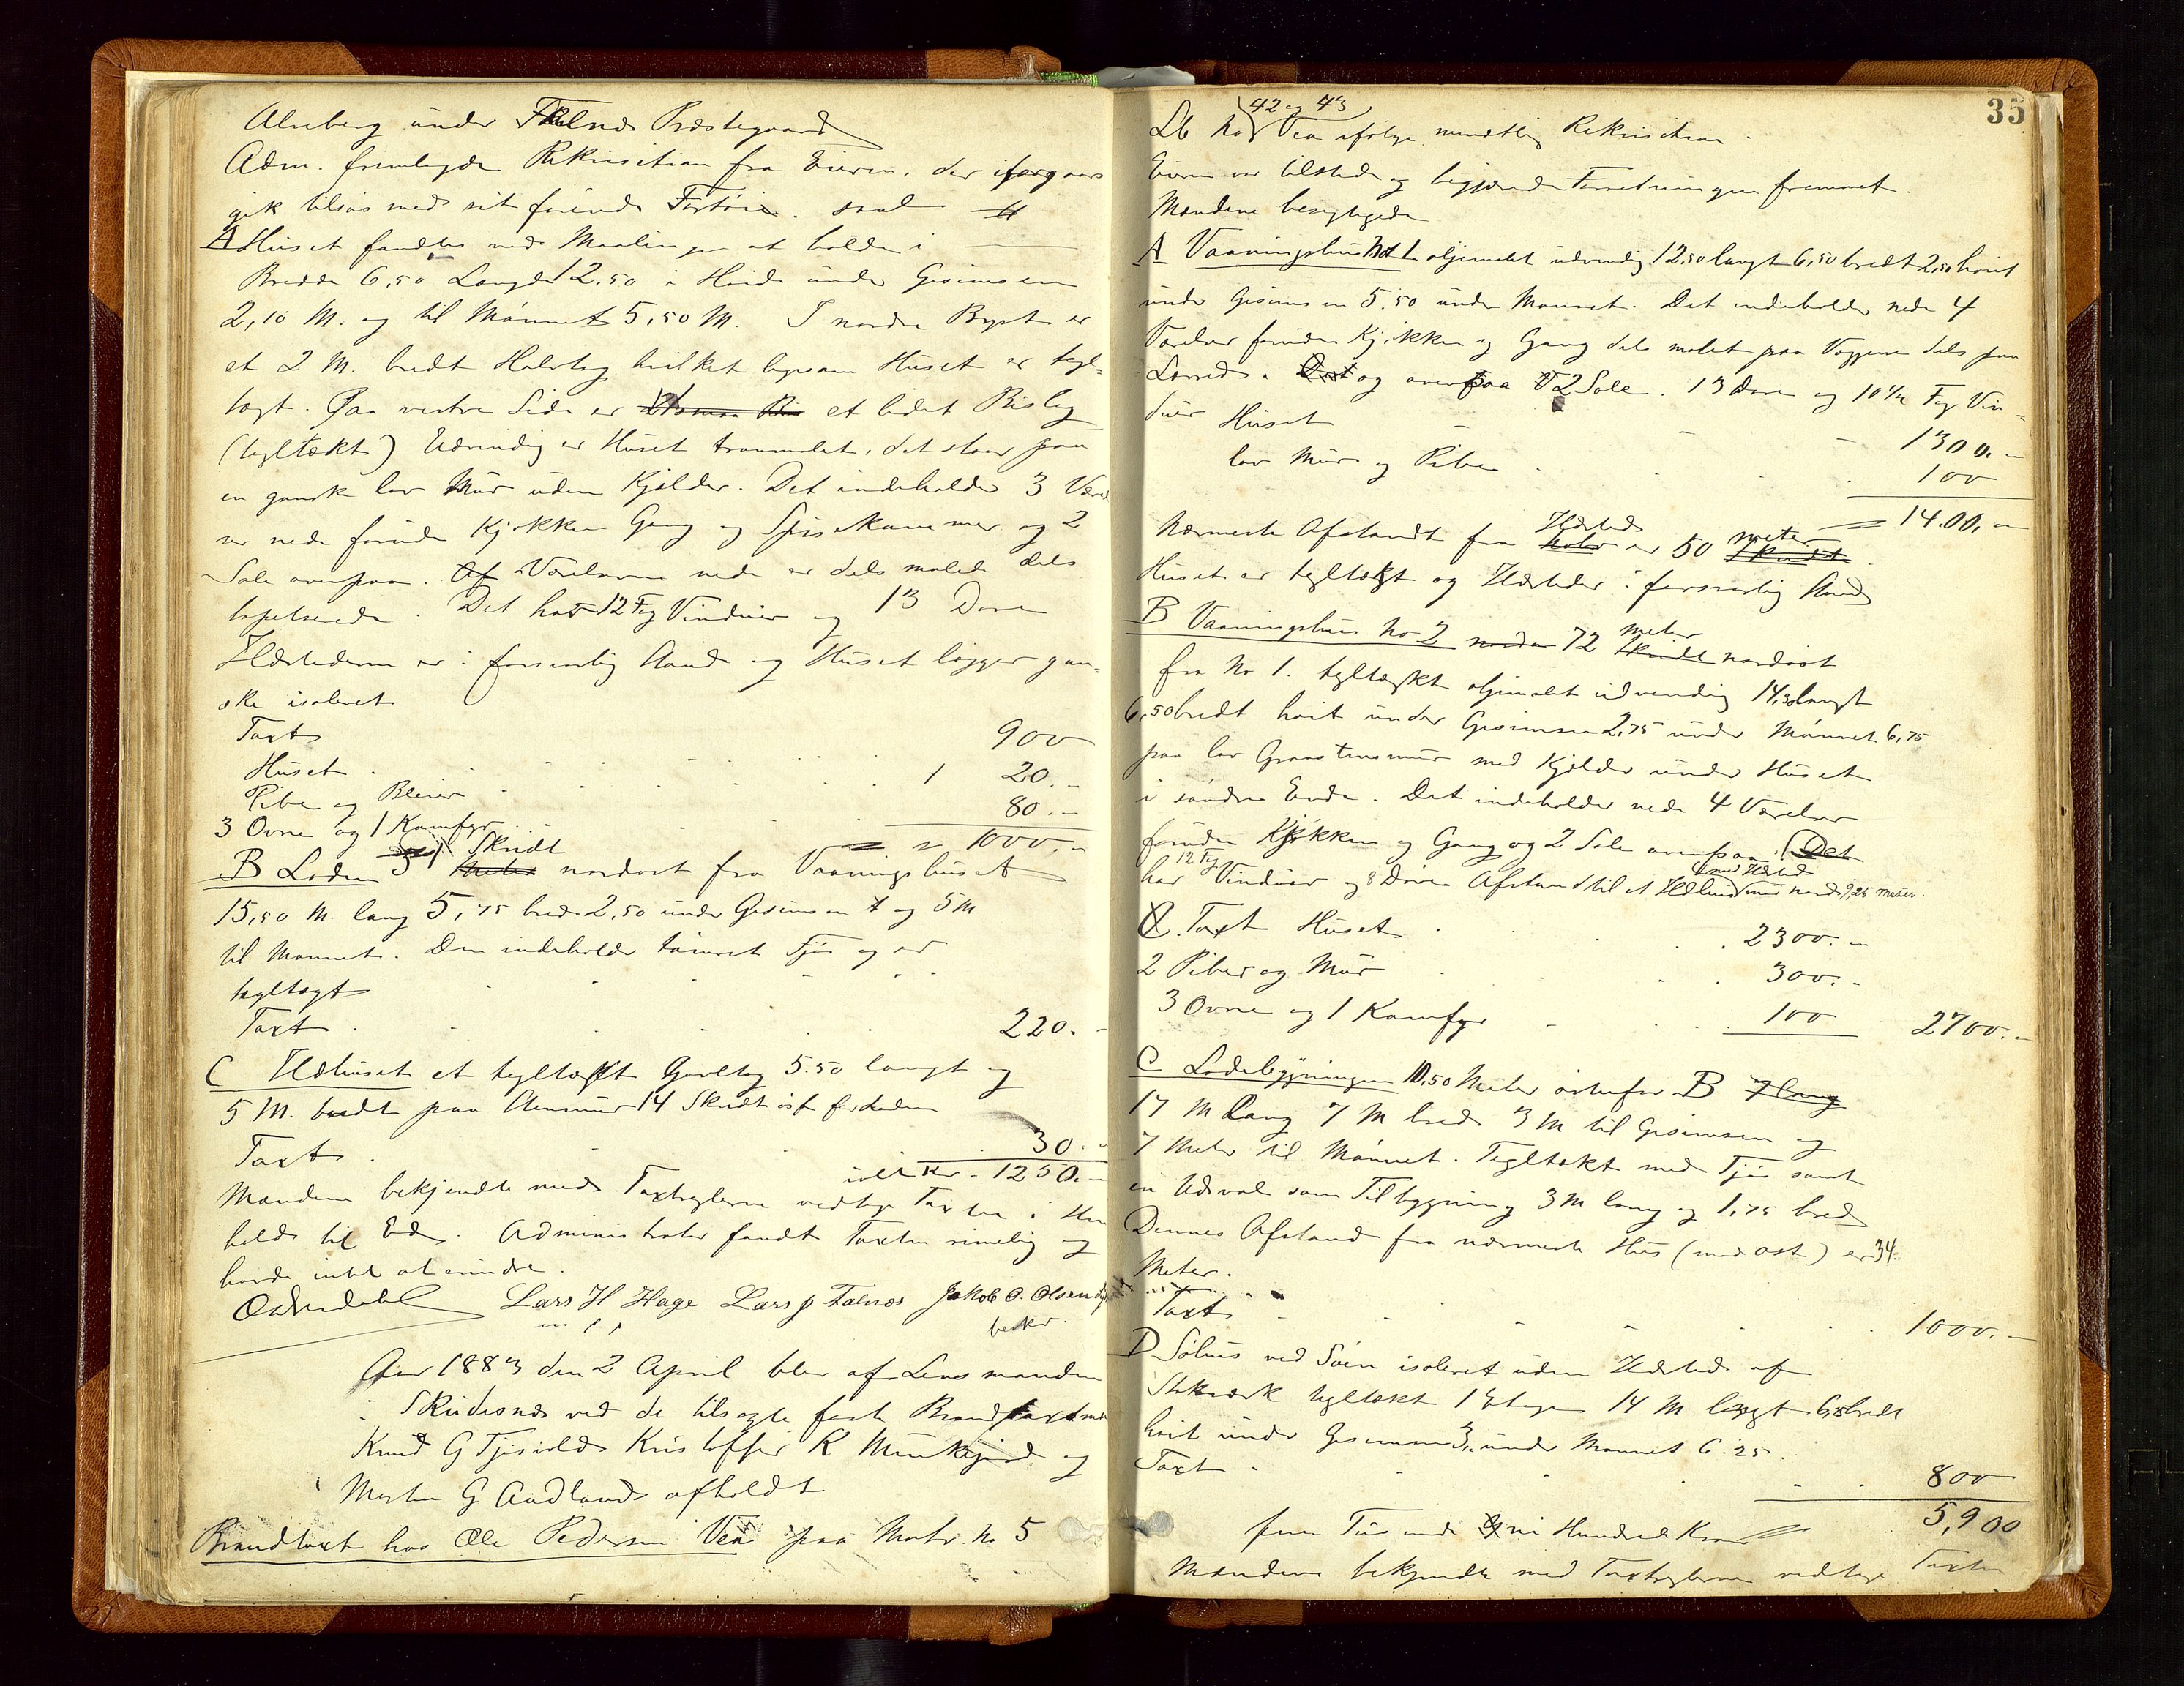 Alneberg under Falnæs Præstegaard
Adm. fremlagde Rekvisition fra Eieren, der iforgaars
gik tilsøs med sit førende Fartøi. saal
A Huset fandtes ved Maalingen at holde i
Bredde 6,50 Længde 12,50 i Høide under Gesimsen
2,10 M. og til Mønnet 5,50 M. I nordre Byst er
et 2 M. bredt Halvtag hvilket ligesom Huset er tegl-
tagt. Paa vestre Side er et lidet Bislag
(tegltækt) Udvendig er Huset tranmalet, det staar paa
en ganske lav Mur uden Kjelder. Det indeholder 3 Værel
ser nede foruden Kjøkken Gang og Spisekammer og 2
Sale ovenpaa. Af Værelserne nede er dels malede dels
tapetserede. Det har 12 Fag Vinduer og 13 Døre
Ildstederne er i forsvarlig Stand og Huset ligger gan-
ske isoleret
Taxt
Huset 900
Pibe og Bleier 1 20.-
3 Ovne og 1 Komfyr 80.-
= 1000.-
B Laden 31 Skridt nordost fra Vaaningshuset
15,50 M. lang 5,75 bred 2,50 under Gesimsen og 5 M
til Mønnet. Den indeholder tømret Fjøs og er
tegltagt
Taxt 220.-
C Ildhuset et tegltækt Gavltag 5.50 langt og
5 M. bredt paa Stenmur 14 Skridt øst for Laden
Taxt 30.-
ialt Kr. 1250.-
Mændene bekjendte med Taxtreglerne vedtog Taxten i Hen
hold til Ed. Administrator fandt Taxten rimelig og
havde intet at erindre.
Lars H Hage Lars J Falnæs Jakob O. Olsen
m f p beskr.
Aar 1883 den 2 April blev af Lensmanden
i Skudesnæs ved de tilsagte faste Brandtaxtmænd
Knud G Tjøsvold Kristoffer K Munkejord og
Morten G Aadland afholdt
Brandtaxt hos Ole Pedersen Vea paa Matr. No 5
35
Lb No 42 og 43 Vea ifølge mundtlig Rekvisition.
Eieren var tilstede og begjærede Forretningen fremmet.
Mændene besigtigede
A Vaaningshus No 1 oljemalet udvendig 12,50 langt 6,50 bredt 2,50 høit
under Gesimsen 5.50 under Mønnet. Det indeholder nede 4
Værelser foruden Kjøkken og Gang dels malet paa Væggene dels paa
Lærred. Det og ovenpaa 2 Sale. 13 Døre og 10 1/2 Fag Vin-
duer Huset 1300.-
lav Mur og Pibe 100
= 14.00.-
Nærmeste Afstandt fra Ildsted er 50 meter Skridt.
Huset er tegltækt og Ildsteder i forsvarlig Stand
B Vaaningshus No 2 72 meter Skridt nordost
fra No 1. tegltækt oljemalet udvendig 14,30 langt
6,50 bredt høit under Gesimsen 2,75 under Mønnet 6,75
paa lav Graastensmur med Kjelder under Huset
i søndre Ende. Det indeholder nede 4 Værelser
foruden Kjøkken og Gang og 2 Sale ovenpaa. Det
har 12 Fag Vinduer og 8 Døre Afstand til et Ildhus med Ildsted mod nord 9,25 Meter.
Taxt Huset 2300.-
2 Piber og Mur 300.-
3 Ovne og 1 Komfyr 100 2700.-
C Ladebygningen 10,50 Meter østenfor B 7 lang
17 M Lang 7 M bred 3 M til Gesimsen og
7 Meter til Mønnet. Tegltækt med Fjøs samt
en Udsval som Tilbygning 3 M lang og 1,75 bred
Dennes Afstand fra nærmeste Hus (mod ost) er 34
Meter.
Taxt 1000.-
D Søhus ved Søen isoleret uden Ildsted af
Stokværk tegltækt 1 Etage 14 M langt bredt
høit under Gesimsen 3,. under Mønnet 6.25.
Taxt 800
5,900
fem Tusinde ni Hundrede Kroner
Mændene bekjendte med Taxtreglerne vedtoge Taxten